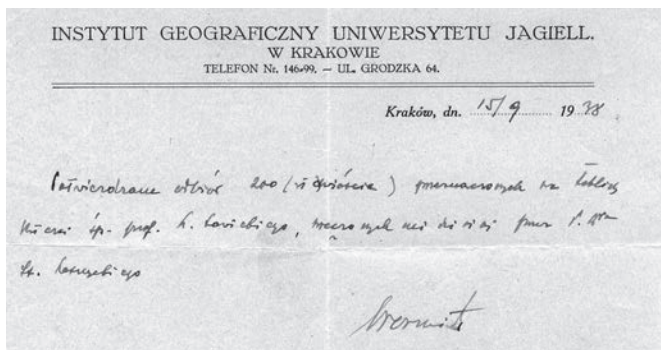 INSTYTUT GEOGRAFICZNY UNIWERSYTETU JAGIELL.
W KRAKOWIE
TELEFON Nr. 146-99. — UL. GRODZKA 64.
Kraków, dn. 15/9 1938
Potwierdzam odbiór 200 (dwieście) przeznaczonych na tablicę
ku czci śp. prof. L. Sawickiego, wręczonych mi dzisiaj przez P.
St.